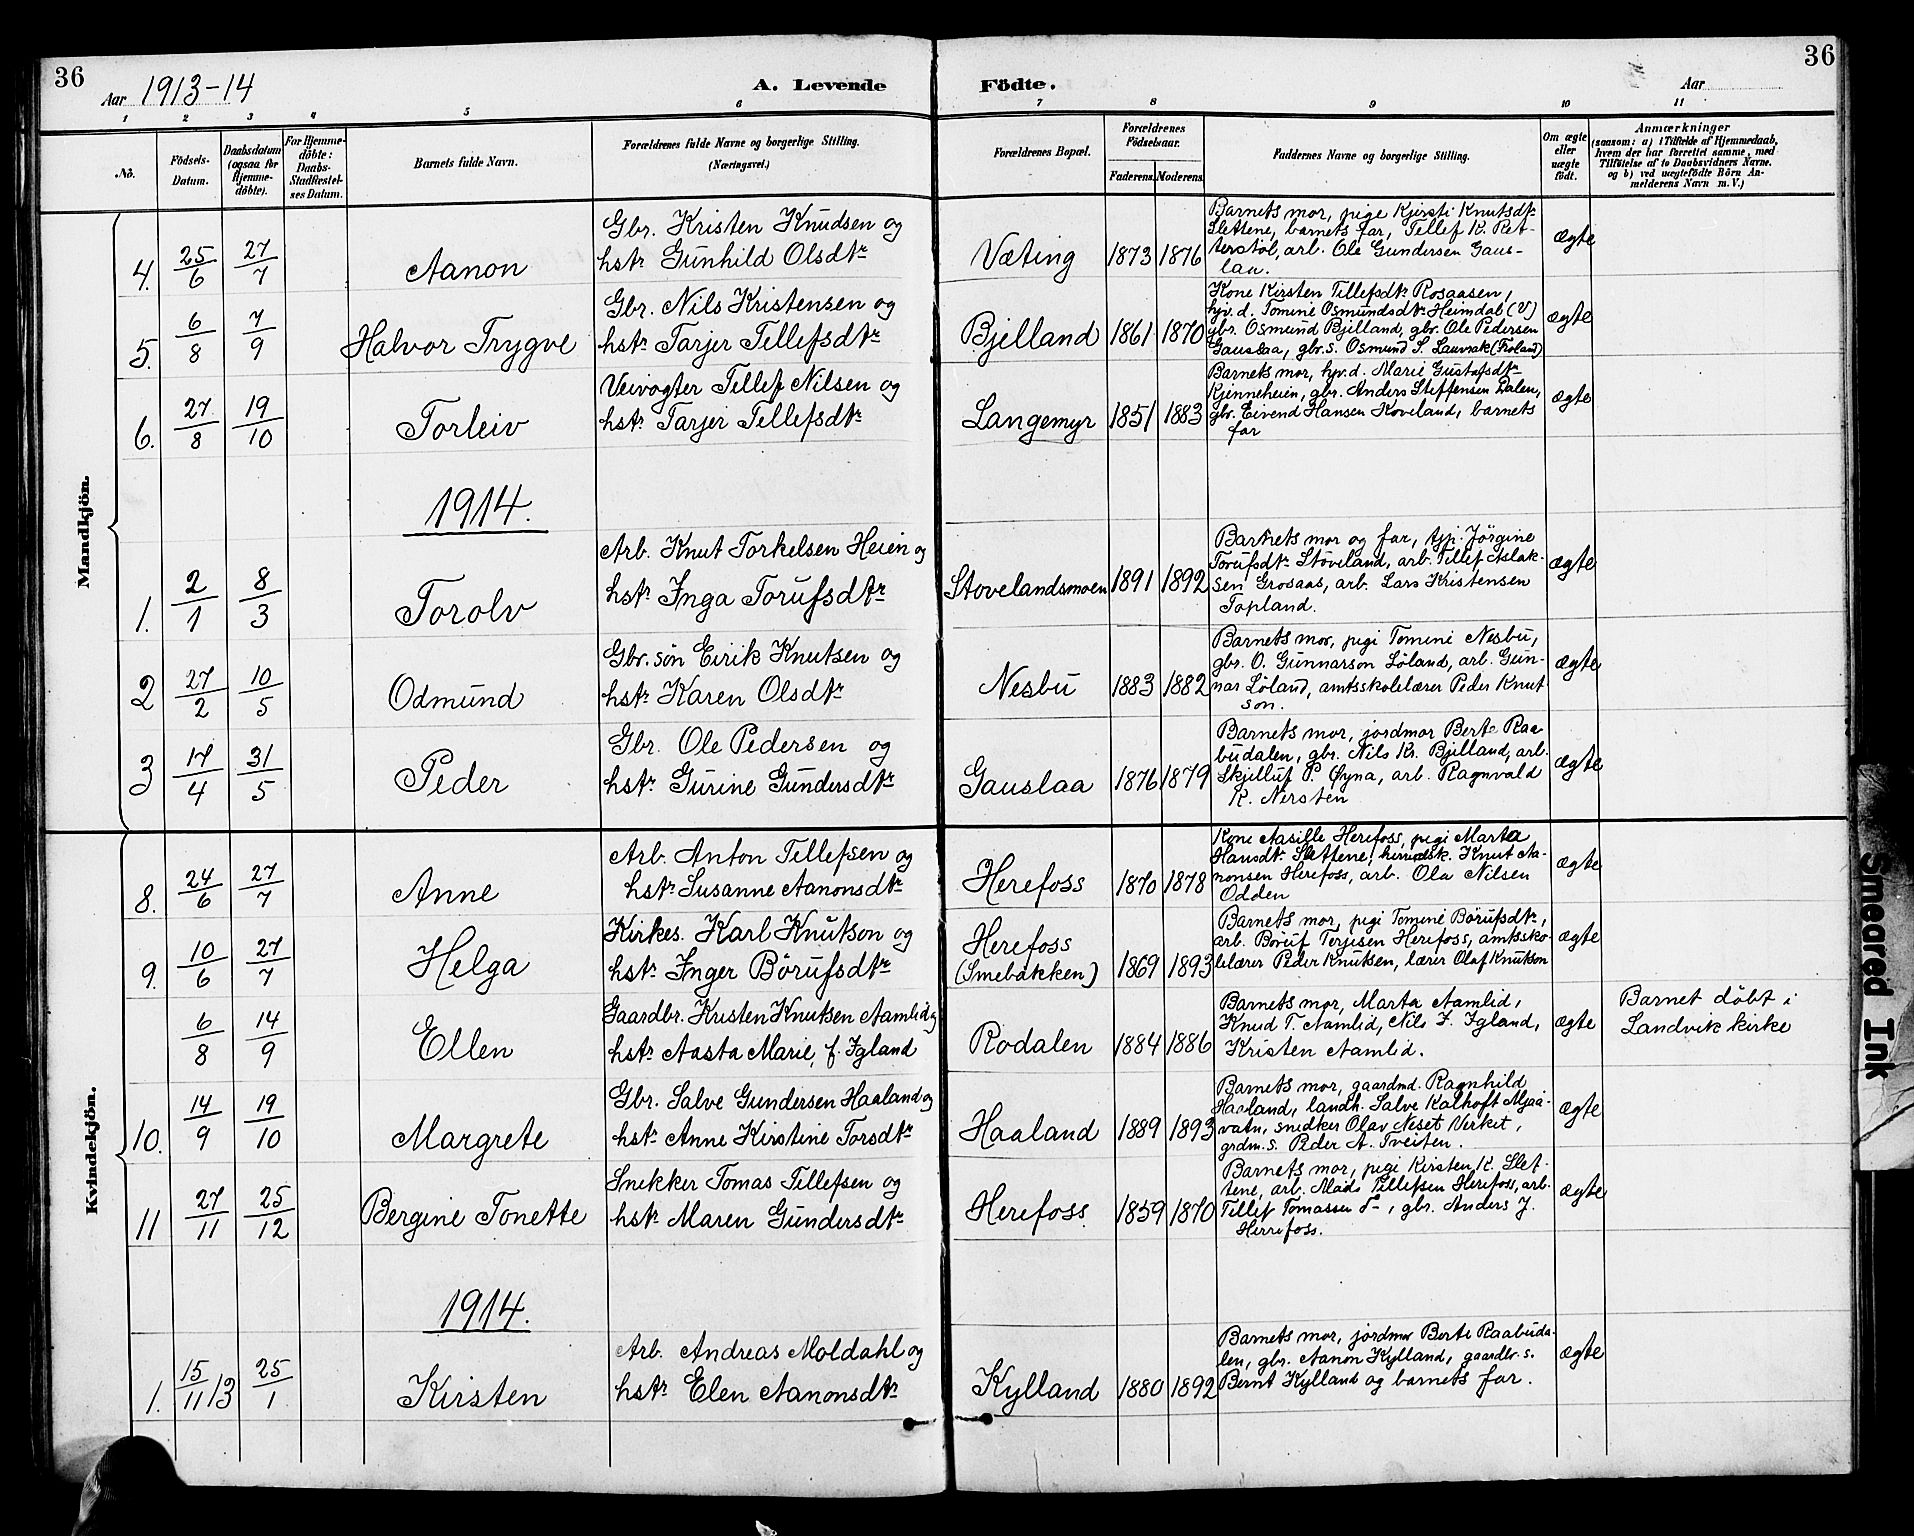 36
36
Aar 1913-14
A. Levende
Födte.
Aar
1 2 3 4 5 6 7 8 9 10 11
No.
Födsels-Datum.
Daabsdatum (ogsaa for Hjemmedöbte).
For Hjemmedöbte: Daabs-Stadfæstelses Datum.
Barnets fulde Navn.
Forældrenes fulde Navne og borgerlige Stilling. (Næringsvei.)
Forældrenes Bopæl.
Forældrenes Födselsaar.
Faderens. Moderens.
Faddernes Navne og borgerlige Stilling.
Om ægte eller uægte födt.
Anmærkninger
(saasom: a) i Tilfælde af Hjemmedaab, hvem der har forrettet samme, med Tilföielse af to Daabsvidners Navne. og b) ved uægtefödte Börn Anmelderens Navn m. V.)
Mandkjön.
4. 25/6 27/7 Aanon
Gbr. Kristen Knudsen og
hstr Gunhild Olsdtr
Væting 1873 1876
Barnets mor, pige Kjersti Knutsdtr
Slettene, barnets far, Tellef K. Ret-
terstöl, arb. Ole Gundersen Gaus-
laa.
ægte
5. 6/8 7/9 Halvor Trygve
Gbr. Nils Kristensen og
hstr Tarjer Tellefsdtr
Bjelland 1861 1870
Kone Kirsten Tellefsdtr Rosaasen,
hjv. d. Tomine Osmundsdtr Heimdal (V)
gbr. Osmund Bjelland, gbr. Ole Pedersen
Gauslaa, gbr. s. Osmund S. Lauvrak (Froland)
ægte
6. 27/8 19/10 Torleiv
Veivogter Tellef Nilsen og
hstr Tarjer Tellefsdtr
Langemyr 1851 1883
Barnets mor, hjv. d. Marie Gustafsdtr
Kjenneheien, gbr. Anders Steffensen Dalen,
gbr. Eivend Hansen Koveland, barnets
far
ægte
1914.
1. 2/1 8/3 Torolv
Arb. Knut Torkelsen Heien og
hstr Inga Torufsdtr
Stovelandsmoen 1891 1892
Barnets mor og far, tjp. Jörgine
Torufsdtr Stöveland, arb. Tellef Aslak-
sen Grosaas, arb. Lars Kristensen
Topland.
ægte
2 27/2 10/5 Odmund
Gbr. søn Eirik Knutsen og
hstr Karen Olsdtr
Nesbu 1883 1882
Barnets mor, pigi Tomine Nesbu,
gbr. O. Gunnarson Löland, arb. Gun-
nar Löland, amtsskolelærer Peder Knut-
son.
ægte
3 17/4 31/5 Peder
Gbr. Ole Pedersen og
hstr Gurine Gundersdtr
Gauslaa 1876 1879
Barnets mor, jordmor Berte Raa-
budalen, gbr. Nils Kr. Bjelland, arb.
Skjelluf P. Øyna, arb. Ragnvald
K. Nersten
ægte
Kvindekjön.
8. 24/6 27/7 Anne
Arb. Anton Tellefsen og
hstr Susanne Aanonsdtr
Herefoss 1870 1878
Kone Aasille Herefoss, pigi Marta
Hansdtr Slettene, herredsk. Knut Aa-
nonsen Herefoss, arb. Ola Nilsen
Odden
ægte
9. 10/6 27/7 Helga
Kirkes. Karl Knutson og
hstr Inger Börufsdtr
Herefoss
(Smebakken) 1869 1893
Barnets mor, pigi Tomine Börufsdtr,
arb. Böruf Terjesen Herefoss, amtssko-
lelærer Peder Knutsen, lærer Olaf Knutson
ægte
6/8 14/9 Ellen
Gaardbr. Kristen Knutsen Aamlid og
hstr Aasta Marie, f. Igland
Rodalen 1884 1886
Barnets mor, Marta Aamlid,
Knud T. Aamlid, Nils J. Igland,
Kristen Aamlid.
ægte
Barnet döbt i
Landvik kirke
10. 14/9 19/10 Margrete
Gbr. Salve Gundersen Haaland og
hstr Anne Kirstine Torsdtr
Haaland 1889 1893
Barnets mor, gaardmd. Ragnhild
Haaland, landh. Salve Kalhoft Mjaa-
vatn, snedker Olav Neset Verket,
grdm. s. Peder A. Tveiten.
ægte
11 27/11 25/12 Bergine Tonette
Snekker Tomas Tellefsen og
hstr Maren Gundersdtr
Herefoss 1859 1870
Barnets mor, pigi Kirsten K. Slet-
tene, arb. Mads Tellefsen Herefoss, arb.
Tellef Tomassen T-, gbr. Anders J.
Herrefoss.
ægte
1914.
1. 15/11 13 25/1 Kirsten
Arb. Andreas Moldahl og
hstr Elen Aanonsdtr
Kylland 1880 1892
Barnets mor, jordmor Berte Raabuda-
len, gbr. Aanon Kylland, gaardbr. s.
Bernt Kylland og barnets far.
ægte
Smeared Ink